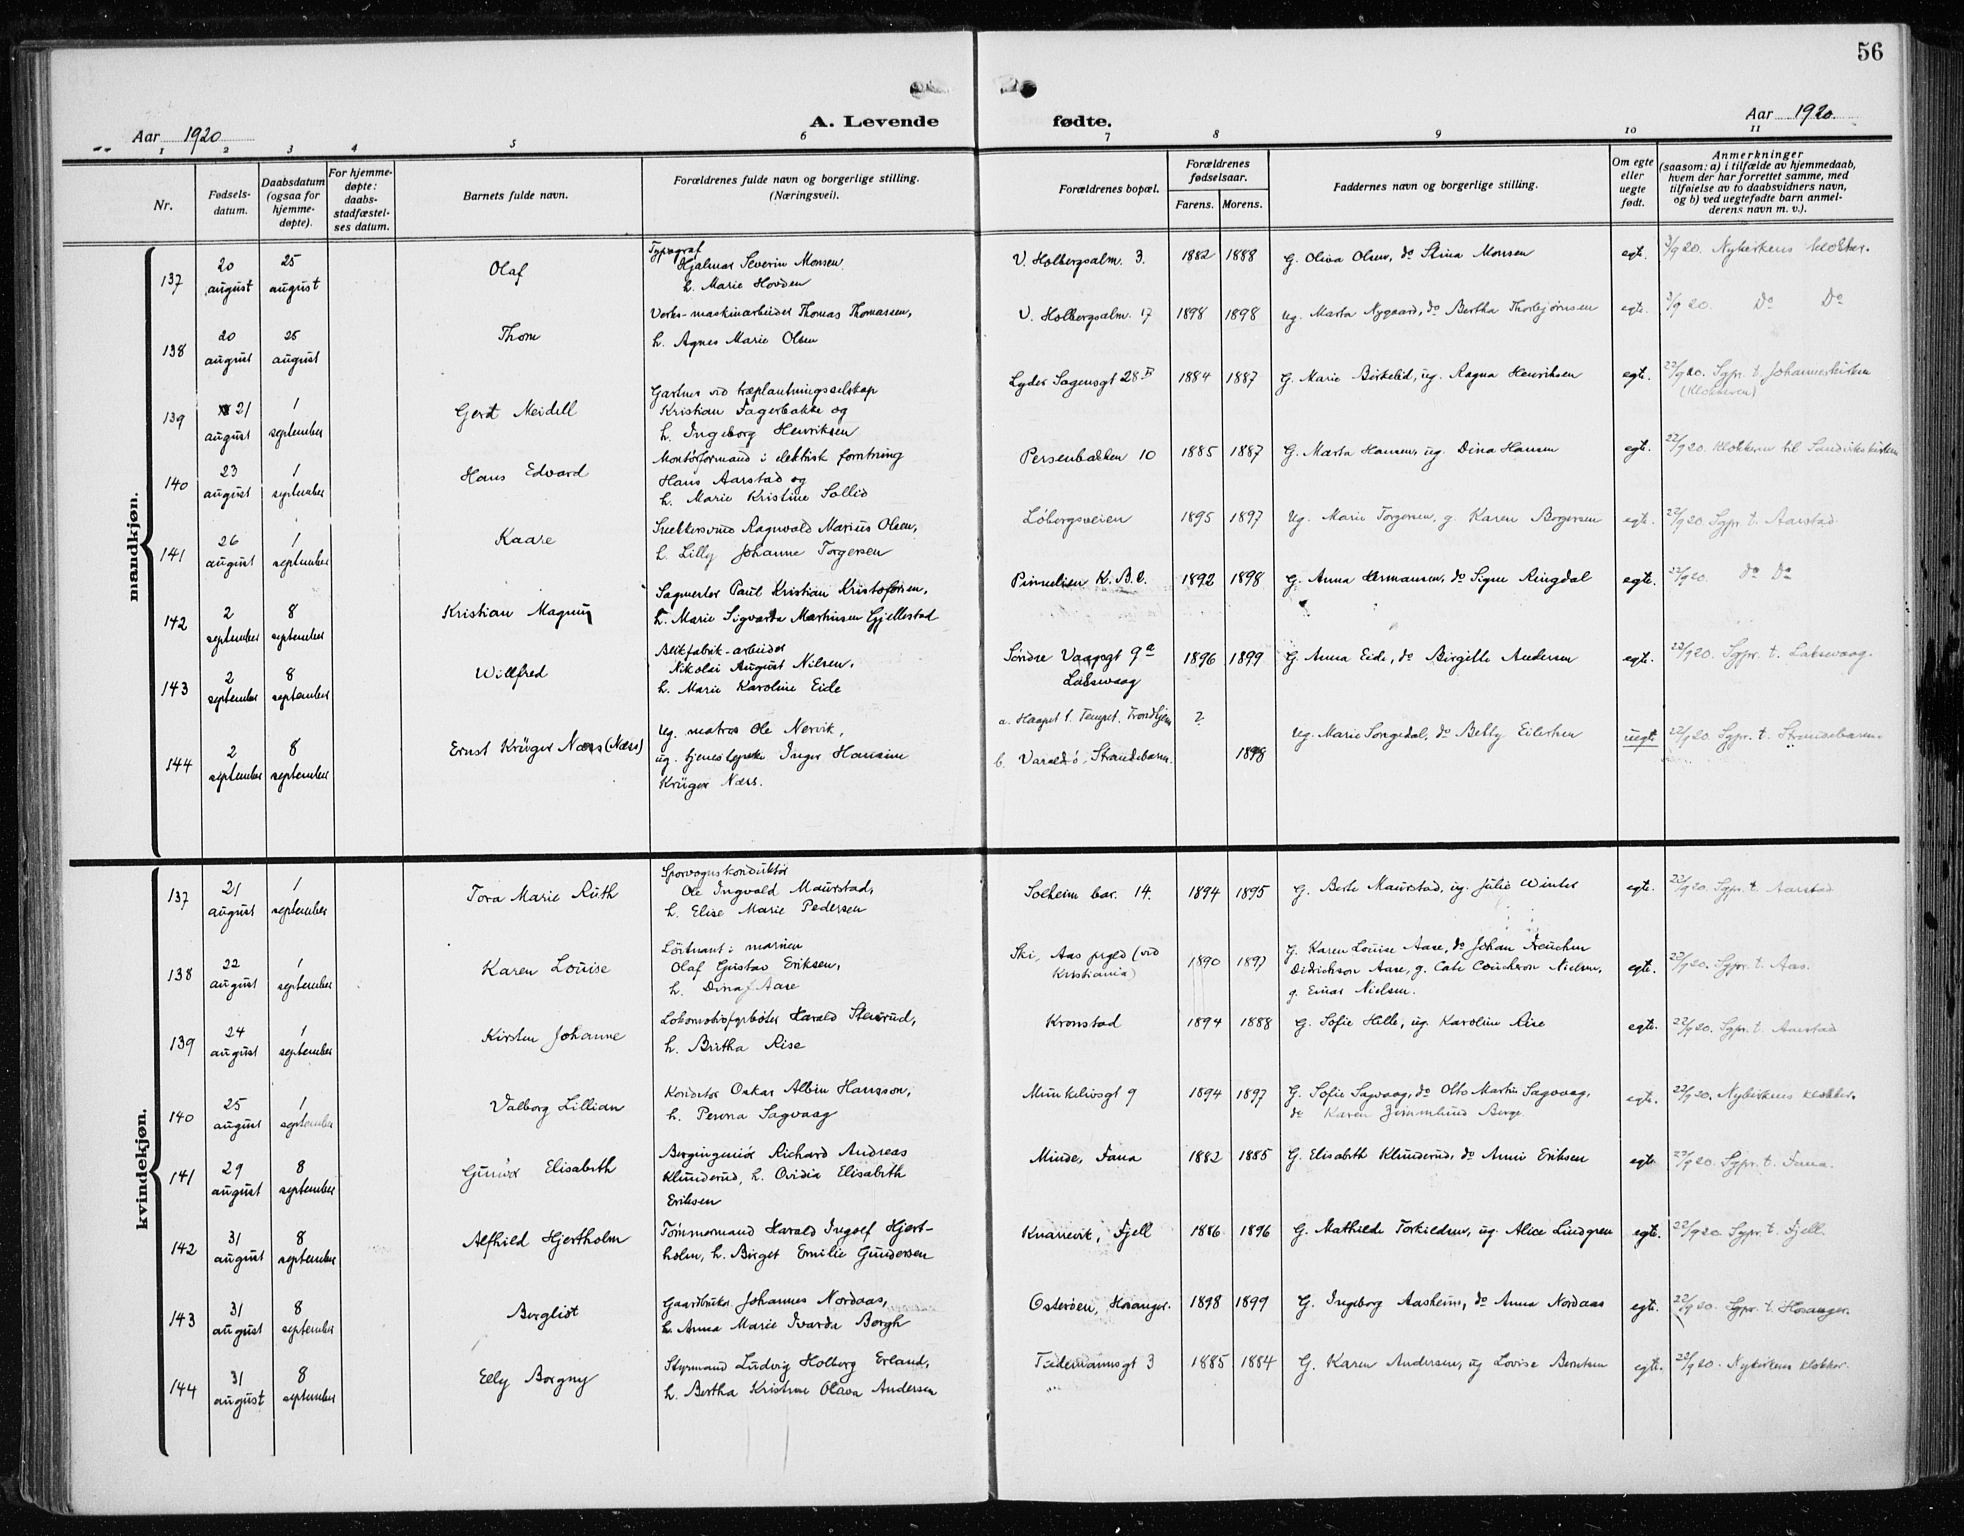 56
Aar 1920
A. Levende fødte.
Aar 1920.
1 2 3 4 5 6 7 8 9 10 11
Nr.
Fødsels-
datum.
Daabsdatum
(ogsaa for
hjemme-
døpte).
For hjemme-
døpte:
daabs-
stadfæstel-
ses datum.
Barnets fulde navn.
Forældrenes fulde navn og borgerlige stilling.
(Næringsvei).
Forældrenes bopæl.
Forældrenes
fødselsaar.
Farens. Morens.
Faddernes navn og borgerlige stilling.
Om egte
eller
uegte
født.
Anmerkninger
(saasom: a) i tilfælde av hjemmedaab,
hvem der har forrettet samme, med
tilføielse av to daabsvidners navn,
og b) ved uegtefødte barn anmel-
derens navn m. v.).
mandkjøn.
137
20
august
25
august
Olaf
Typograf
Hjalmar Severin Monsen,
h. Marie Hovden
V. Holbergsalm. 3.
1882 1888
G. Oliva Olsen, do Stina Monsen
egte.
3/9 20. Nykirkens klokker.
138
20
august
25
august
Thom
Verks-maskinarbeider Thomas Thomassen,
h. Agnes Marie Olsen
V. Holbergsalm. 17
1898 1898
ug. Marta Nygaard, do Bertha Thorbjørnsen
egte.
3/9 20. Do Do
139
21
august
1
september
Gerdt Meidell
Gartner ved
Kristian Fagerbakke og
h. Ingeborg Henriksen
Lyder Sagensgt 28 B
1884 1887
G. Marie Birkelid, ug. Ragna Henriksen
egte.
22/9 20. Sgpr. t. Johanneskirken
(Klokkeren)
140
23
august
1
september
Hans Edvard
Montørformand i elektrisk forretning
Hans Aarstad og
h. Marie Kristine Sollid
Persenbakken 10
1885 1887
G. Marta Hansen, ug. Dina Hansen
egte.
22/9 20. Klokkeren til Sandvikskirken
141
26
august
1
september
Kaare
Snekkersvend Ragnvald Marius Olsen,
h. Lilly Johanne Torgersen
Løbergsveien
1895 1897
Ug. Marie Torgersen, g. Karen Borgersen
egte.
22/9 20. Sgpr. t. Aarstad
142
2
september
8
september
Kristian Magnus
Sagmester Paul Kristian Kristofersen,
h. Marie Sigvarda Marthinsen Gjellestad
K.B.B.
1892 1898
G. Anna Hermansen, do Signe Ringdal
egte.
22/9 20. Do Do
143
2
september
8
september
Willfred
Blikfabrik-arbeider
Nikolai August Nilsen,
h. Marie Karoline Eide
Søndre Vaagsgt 9a
Laksevaag
1896 1899
G. Anna Eide, do Birgitte Andersen
egte.
22/9 20. Sgpr. t. Laksevaag.
144
2
september
8
september
Ernst Krüger Næss (Næss)
Ug. matros Ole Nervik,
ug. tjenestepike Inger Hansine
Krüger Næss.
a. Tempet. Trondhjem
b. Varaldsø, Strandebarm.
?
1898
Ug. Marie Songedal, do Betty Eilertsen
uegte
22/9 20. Sgpr. t. Strandebarm
kvindekjøn.
137
21
august
1
september
Tora Marie Ruth
Sporvognskonduktør
Ole Ingvald Maurstad,
h. Elise Marie Pedersen
Solheim bar. 14.
1894 1895
G. Berte Maurstad, ug. Julie Winter
egte.
22/9 20. Sgpr. t. Aarstad
138
22
august
1
september
Karen Louise
Løitnant i marinen
Olaf Gustav Eriksen,
h. Dina Aase
Ski, Aas prgld (ved
Kristiania)
1890 1897
G. Karen Louise Aase, do Johan
Didrichson Aase, g. Cate Nielsen,
g. Einar Nielsen.
egte.
22/9 20. Sgpr. t. Aas.
139
24
august
1
september
Kirsten Johanne
Lokomotivfyrbøter Harald Stensrud,
h. Birtha Rise
Kronstad
1894 1888
G. Sofie Hille, ug. Karoline Rise
egte.
22/9 20. Sgpr. t. Aarstad
140
25
august
1
september
Valborg Lillian
Konditor Oskar Albin Hansson,
h. Perna Sagvaag
Munkelivsgt 9
1894 1897
G. Sofie Sagvaag, do Otto Martin Sagvaag,
do Karen Berge.
egte.
22/9 20. Nykirkens klokker.
141
29
august
8
september
Gunvor Elisabeth
Bergingeniør Richard Andreas
Klunderud, h. Ovidia Elisabeth
Eriksen
Minde, Fana
1882 1885
G. Elisabeth Klunderud, do Anni Eriksen
egte.
22/9 20. Sgpr. t. Fana.
142
31
august
8
september
Alfhild Hjertholm
Tømmermand Harald Ingolf Hjert-
holm, h. Birget Emilie Gundersen
Knarrevik, Fjell
1886 1896
G. Mathilde Torkildsen, ug. Alice Lindgren
egte.
22/9 20. Sgpr. t. Fjell.
143
31
august
8
september
Bergliot
Gaardbruker Johannes Nordaas,
h. Anna Marie Ivarda Borgh
Osterøen, Hosanger.
1898 1899
G. Ingeborg Aasheim, do Anna Nordaas
egte.
22/9 20. Sgpr. t. Hosanger.
144
31
august
8
september
Elly Borgny
Styrmand Ludvig Holberg Erland,
h. Bertha Kristine Olava Andersen
Tidemannsgt 3
1885 1884
G. Karen Andersen, ug Lovise Berntsen
egte.
22/9 20. Nykirkens klokker.